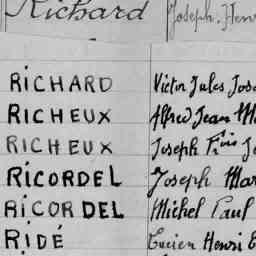 Richard Joseph. Henr
RiCHARD Victor Jules Jose
RICHEUX Alfred Jean Ma
RICHEUX Joseph Fçois Je
RiCORDEL Joseph Mar
RiCORDEL Michel Paul
RiDÉ Lucien Henri E